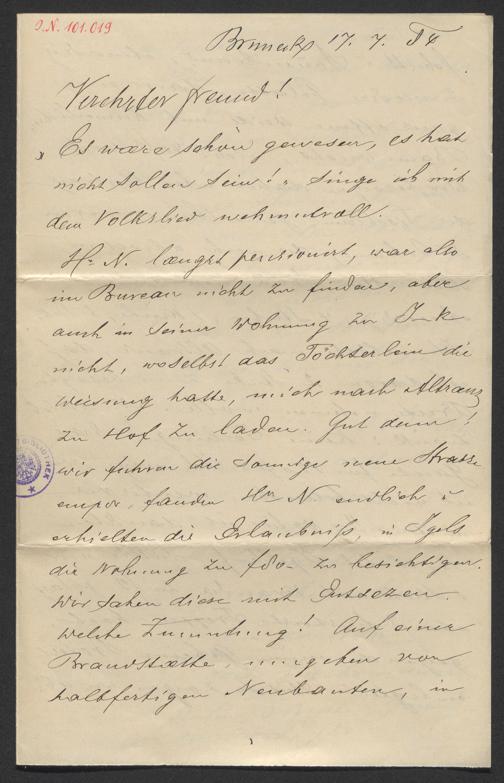 I.N. 101.019
Bruneck 17. 7.
Verehrter Freund!
„Es wære schön gewesen, es hat
nicht sollen sein!" singe ich mit
dem Volkslied wehmutvoll.
Hr N. længst pensioniert, war also
im Bureau nicht zu finden, aber
auch in seiner Wohnung zu I–k
nicht, woselbst das Töchterlein die
Weisung hatte, mich nach Altranz
zu Hof zu laden. Gut denn!
wir fuhren die sonnige neue Strasse
empor, fanden Hrn N endlich u
erhielten die Erlaubniß, in Igels
die Wohnung zu zu besichtigen.
Wir sahen diese mit Entsezen.
welche Zumutung! Auf einer
Brandstætte, umgeben von
halbfertigen Neubauten, in